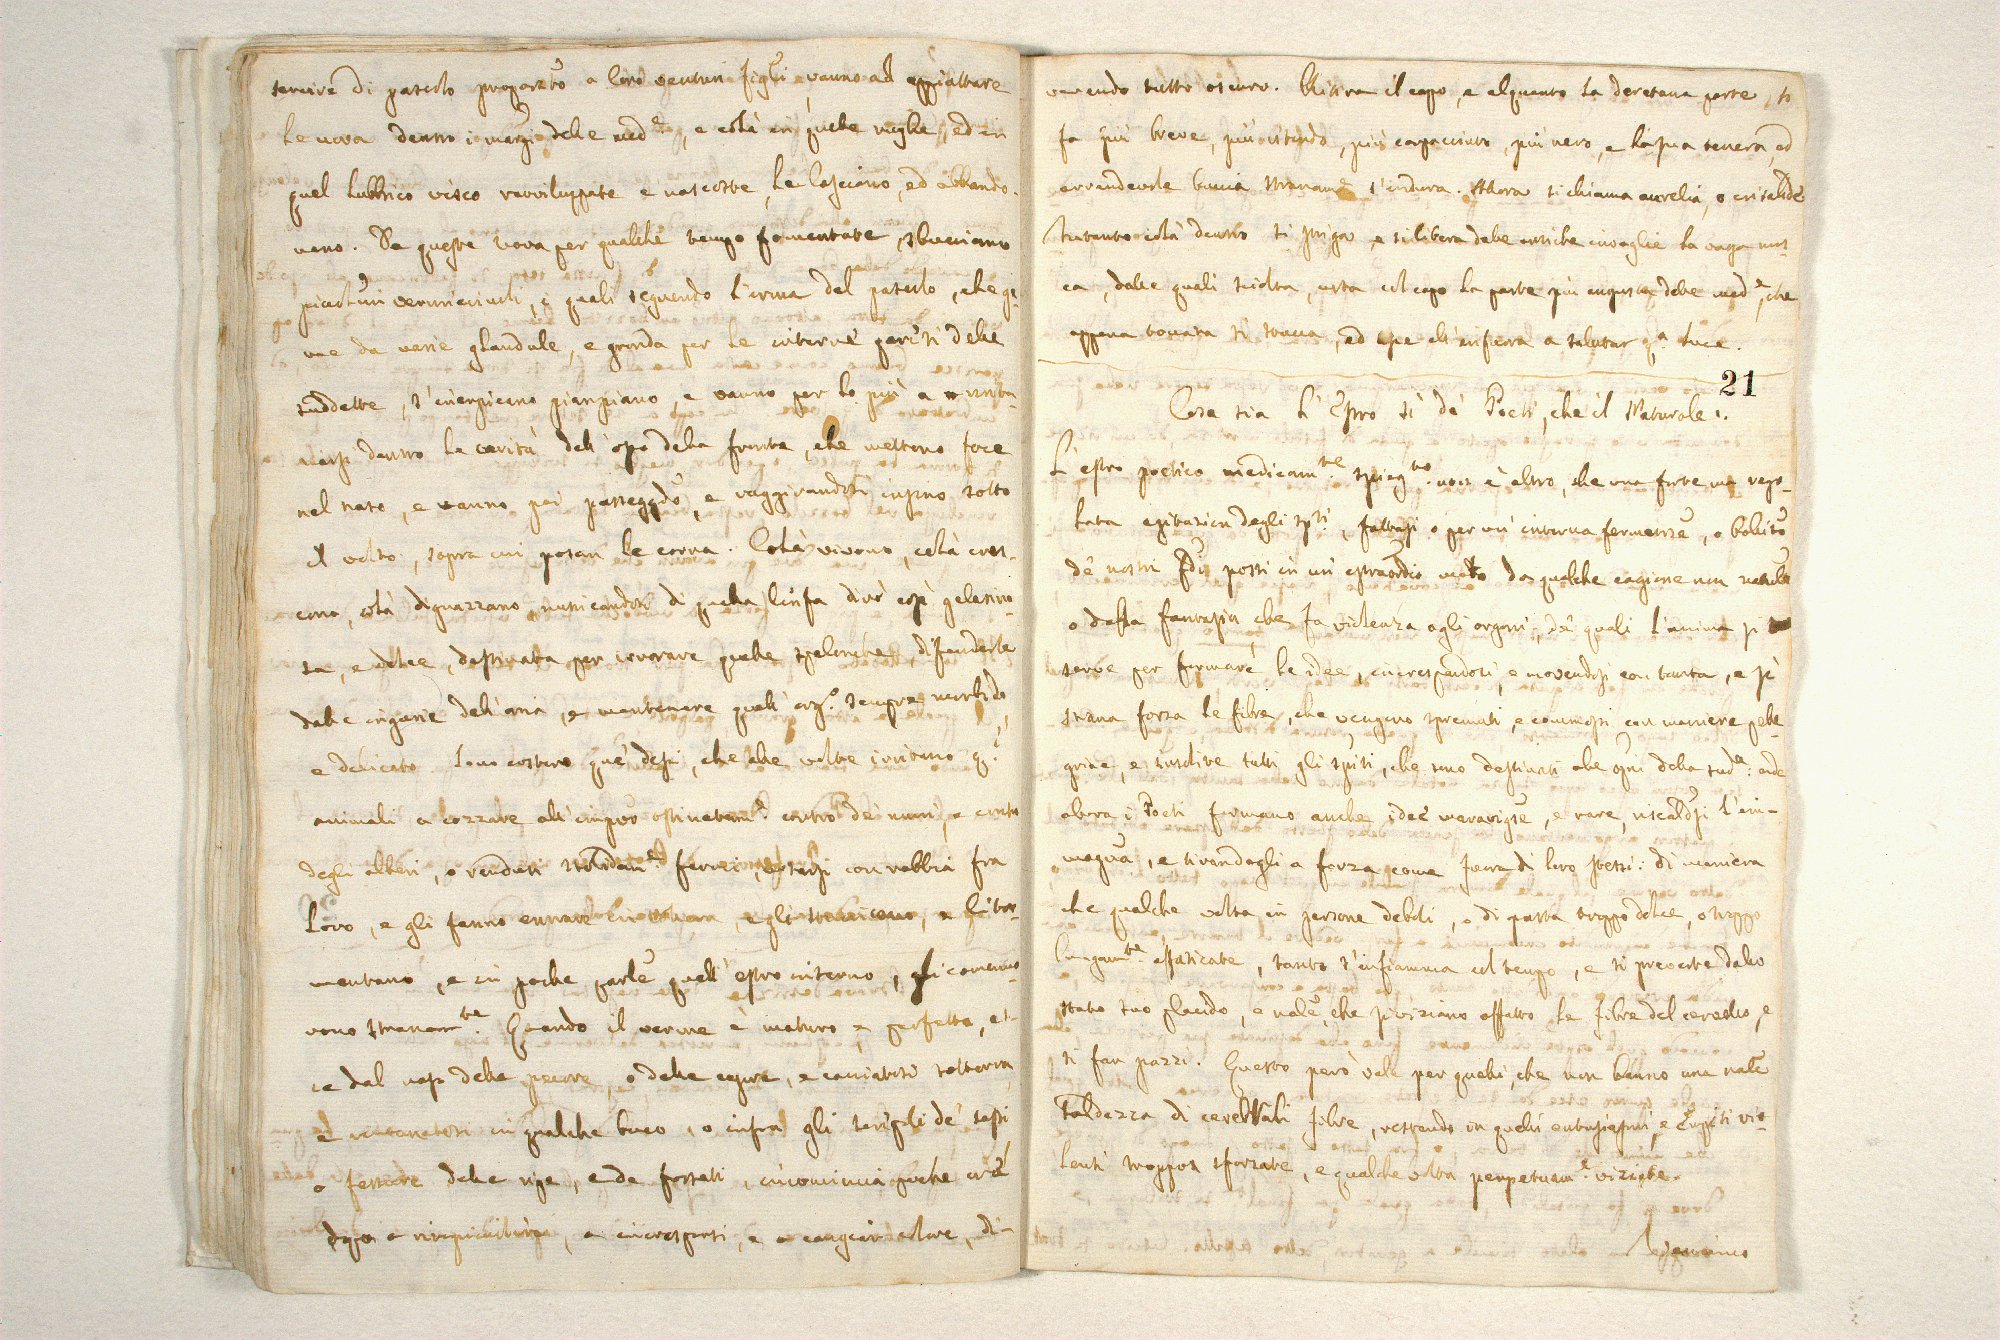 servire di pascolo proporzto a loro venturi figli vanno ad appiattare
le uova dentro i margi delle mede, e colà in quelle rughe, ed in
quel lubbrico visco ravviluppate e nascoste, le lasciano, ed abbando-
nano. Da queste uova per qualche tempo fomentate sbucciano
picioli vermicciuoli, i quali seguendo l'orma del pascolo, che ge-
me da varie glandule, e gronda per le interne pareti delle
suddette, s'inerpicano pianpiano, e vanno per lo più a rimba-
narsi dentro le cavità dell'osso della fronte, che mettono foce
nel naso, e vanno poi passeggdo, e raggirandosi insino sotto
il volto, sopra cui posan le corna. Colà vivono, colà cres-
cono, colà diguazzano nutricandosi di quella linfa così gelatino-
sa, e dolce, destinata per irrorare quelle spelonche, difenderle
dalle ingiurie dell'aria, e mantenere quell'orgo. sempre morbido,
e delicato. Sono costoro que' dessi, che alle volte irritano qi.
animali a cozzare all'improo ostinatame. contro de' muri, e contro
degli alberi, o renduti stolidame. feroci, urtarsi con rabbia fra
loro, e gli fanno entrare in smania, e gli straziano, e gli tor-
mentano, e in poche parole quell'estro interno, gli commuo-
vono stranamte. Quando il verme è maturo e perfetto, es-
ce dal naso delle pecore, o delle capre, e cacciatosi sotterra,
e rintanatosi in qualche buco, o infra gli scrignoli de' sassi
o fessure delle ripe, e de fossati, incomincia poche ore
dopo a rimpicciolirsi, a increspirsi, e a cangiar colore, di-
venendo tutto oscuro. Ritira il capo, e alquanto la deretana parte, si
fa più breve, più ritondo, più corpacciuto, più nero, e la sua tenera, ed
arrendevole buccia straname s'indura. Allora si chiama aurelia, o crisalide
Intanto colà dentro si spriga e si libera dalle antiche invoglie la vaga mos-
ca, dalle quali sciolta, urta col capo la parte più angusta delle mede, che
appena toccata si spacca, ed esce all'infuora a salutar qa. luce.
21
Cosa sia l'Estro sì de' Poeti, che il Naturale.
L'estro poetico medicamte. spiegto. non è altro, che una forte ma rego-
lata agitazion degli spti, fattasi o per un' interna fermentze, o bollito
de' nostri fldi posti in un' estraordio moto da qualche cagione non naturale
o dalla fantasia, che fa violenza agli organi, de' quali l'anima si
serve per formare le idee, increspandosi, e movendosi con tanta, e sì
strana forza le fibre, che vengono spremuti, e commossi con maniere pelle-
grine, e insolite tutti gli spiriti, che sono destinati alle opni della sude. onde
allora i Poeti formano anche idee maravigse, e rare, riscaldsi l'im-
magva, e tirandogli a forza come fuora di loro stessi: di maniera
che qualche volta in persone deboli, o di pasta troppo dolce, o troppo
lungamte. affaticate, tanto s'infiamma col tempo, e si perverte dallo
stato suo placido, e nale, che si viziano affatto le fibre del cervello, e
si fan pazzi. Questo però vale per quelli, che non hanno una nale
saldezza di cerebrali fibre, restando in quelli entusiasmi, e impeti vio-
lenti troppo sforzate, e qualche volta perpetuame. viziate.